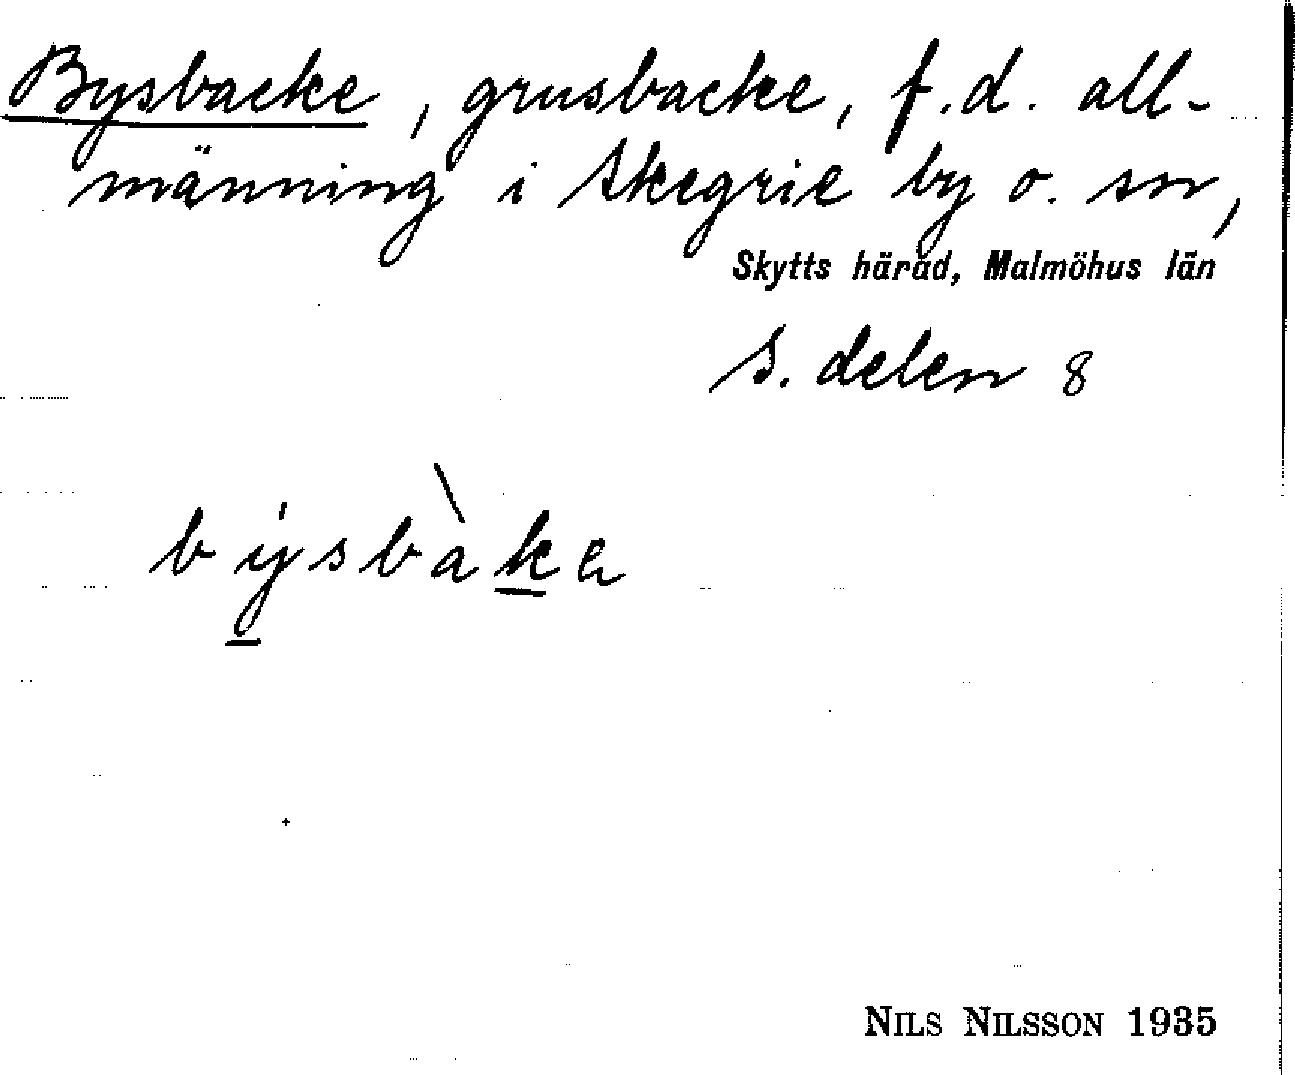 Bysbacke, grusbacke, f.d. all-
männing i Skegrie by o. sn,
Skytts härad, Malmöhus län
S. delen 8
býsbàkɐ
NILS NILSSON 1935